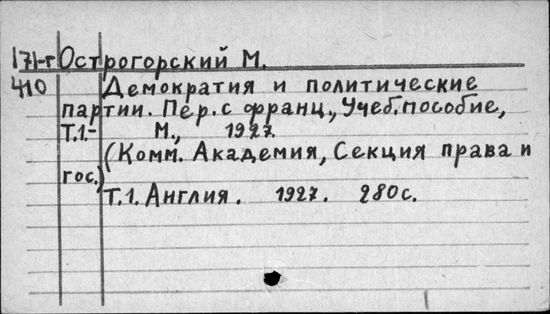 171-г Острогорский М.
410 Демократия и политические
партии. Пер. с франц., Учеб. пособие,
Т.1.- М., 1927.
(Комм. Академия, Секция права и
гос.)
Т.1. Англия. 1927. 280с.